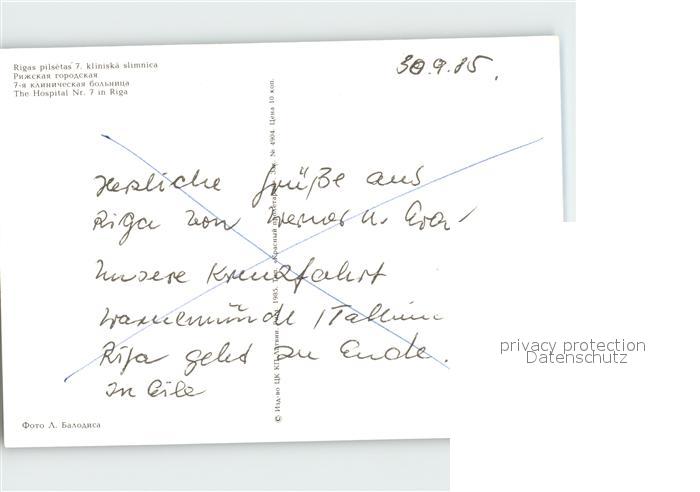 Rīgas pilsētas 7. klīniskā slimnīca
Рижская городская
7-я клиническая больница
The Hospital Nr. 7 in Riga
30.9.85.
Herzliche Grüße aus
Riga von Werner u. Eva
Unsere Kreuzfahrt
Warnemünde / Tallinn
Riga geht zu Ende.
In Eile
Фото Л. Балодиса
© Изд-во ЦК КП Латвии, 1985. Тип. «Красный Зак. № 4904. Цена 10 коп.
privacy protection
Datenschutz